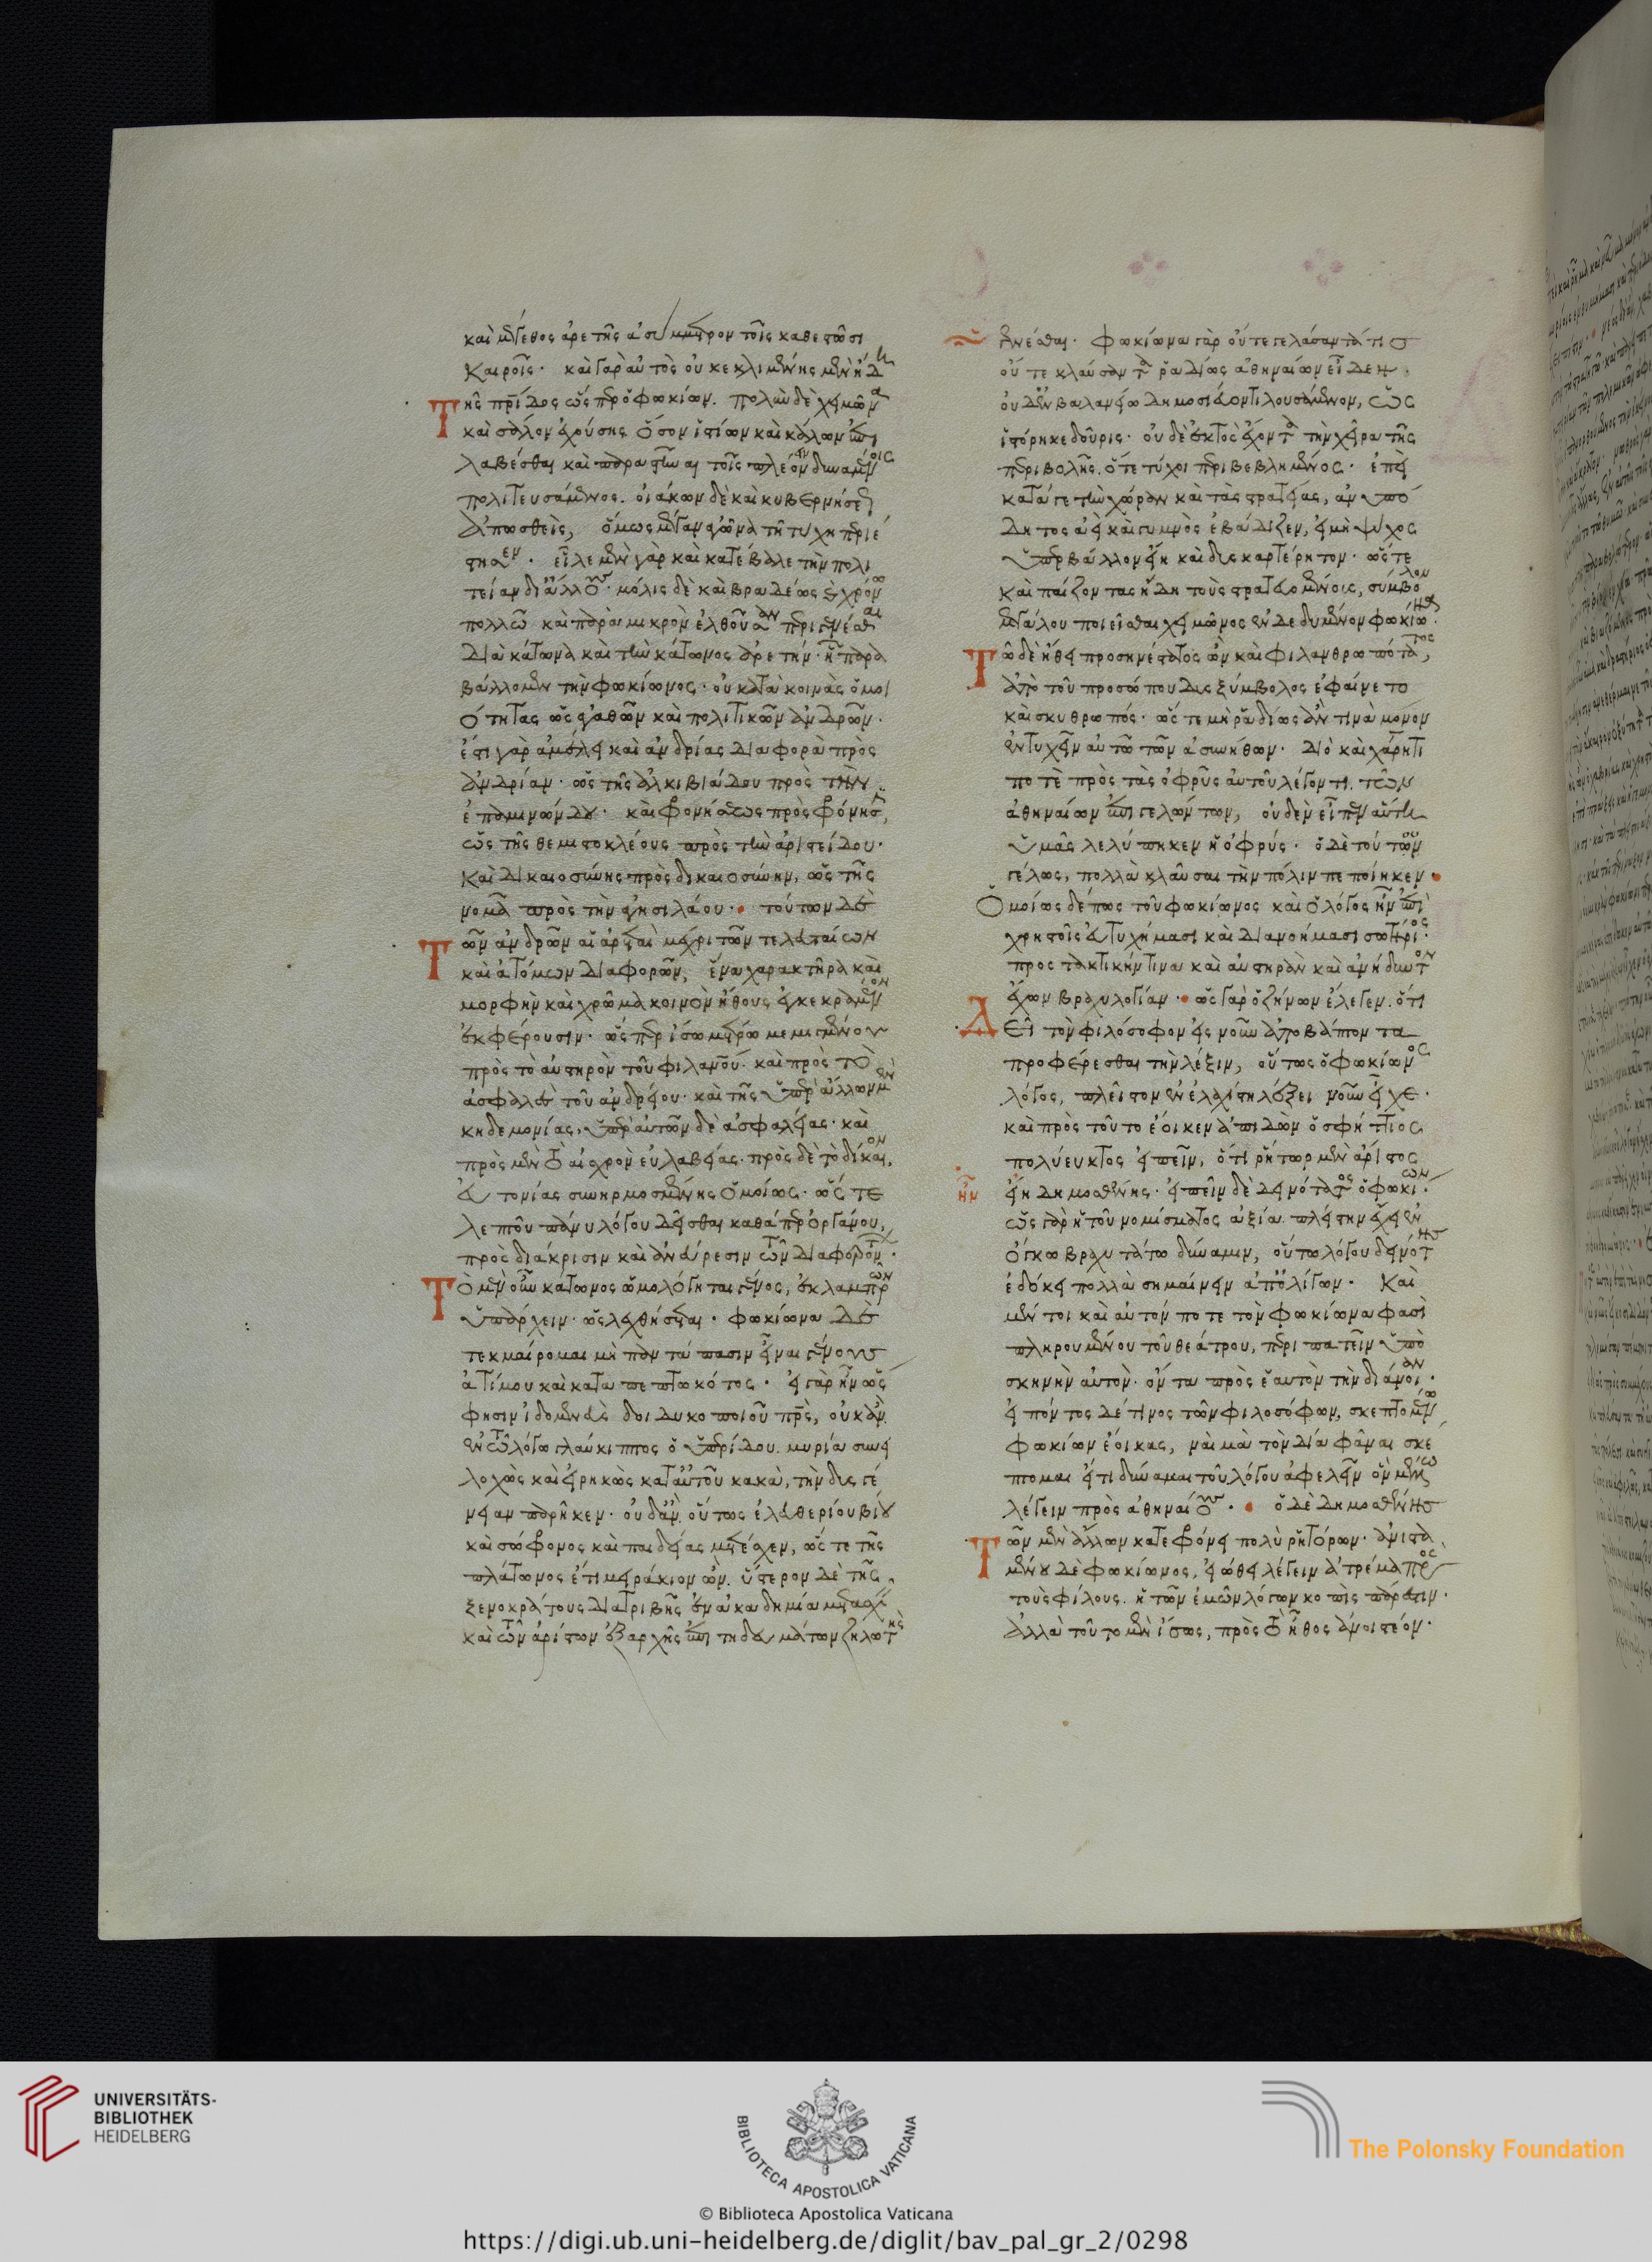 καὶ μέγεθος ἀρετῆς ἀσύμμετρον τοῖς καθεστῶσι
καιροῖς· καὶ γὰρ αὐτὸς οὐ κεκλιμένης μὲν ἤδη
τῆς πρίδος ὥσπερ ὁ φωκίων. πολὺν δὲ χειμῶνα
καὶ σάλον ἐχούσης ὅσον ἱστίων καὶ κάλων ἐπι
λαβέσθαι καὶ παραστῆναι τοῖς πλέον δυναμένοις
πολιτευσάμενος. οἰάκων δὲ καὶ κυβερνήσεως
ἀπωσθεὶς, ὅμως μέγαν ἀγῶνα τῆ τύχη περιέ
στησεν· εἷλε μὲν γὰρ καὶ κατέβαλε τὴν πολι
τείαν δι' ἄλλους· μόλις δὲ καὶ βραδέως καὶ χρόνω
πολλῶ καὶ παρὰ μικρὸν ἐλθοῦσαν περιγενέσθαι
διὰ κάτωνα καὶ τὴν κάτωνος ἀρετήν· ἧ παρα
βάλλομεν τὴν φωκίωνος· οὐ κατὰ κοινὰς ὁμοι
ότητας ὡς ἀγαθῶν καὶ πολιτικῶν ἀνδρῶν·
ἔστι γὰρ ἀμέλει καὶ ἀνδρίας διαφορὰ πρὸς
ἀνδρίαν· ὡς τῆς ἀλκιβιάδου πρὸς τὴν
ἐπαμινώνδου· καὶ φρονήσεως πρὸς φρόνησιν,
ὡς τῆς θεμιστοκλέους πρὸς τὴν ἀριστείδου·
καὶ δικαιοσύνης πρὸς δικαιοσύνην, ὡς τῆς
νομᾶ πρὸς τὴν ἀγησιλάου· τούτων δὲ
τῶν ἀνδρῶν αἱ ἀρεταὶ μέχρι τῶν τελευταίων
καὶ ἀτόμων διαφορῶν, ἕνα χαρακτῆρα καὶ
μορφὴν καὶ χρῶμα κοινὸν ἤθους ἐγκεκραμένον
ἐκφέρουσιν· ὥσπερ ἴσω μέτρω μεμιγμένου
πρὸς τὸ αὐστηρὸν τοῦ φιλανου· καὶ πρὸς τὸ
ἀσφαλὲς τοῦ ἀνδρείου· καὶ τῆς ὑπὲρ ἄλλων μὲν
κηδεμονίας, ὑπὲρ αὐτῶν δὲ ἀσφαλείας· καὶ
πρὸς μὲν τὸ αἰσχρὸν εὐλαβείας· πρὸς δὲ τὸ δίκαιον,
εὐτονίας συνηρμοσμένης ὁμοίως· ὥστε
λεπτοῦ πάνυ λόγου δεῖσθαι καθάπερ ὀργάνου,
πρὸς διάκρισιν καὶ ἀνεύρεσιν τῶν διαφερόντων·
Τὸ μὲν οὖν κάτωνος ὡμολόγηται γένος, ἐκ λαμπρῶν
ὑπάρχειν· ὡς λεχθήσεται· φωκίωνα δὲ
τεκμαίρομαι μὴ παντάπασιν εἶναι γένους
ἀτίμου καὶ καταπεπτωκότος· εἰ γὰρ ἦν ὥς
φησιν ἰδομενεὺς δοιδυκοποιοῦ πρς, οὐκ ἂν
ἐν τῶ λόγω γλαύκιππος ὁ ὑπερίδου. μυρία συνει
λοχὼς καὶ εἰρηκὼς κατ' αὐτοῦ κακὰ, τὴν δυσγέ
νειαν παρῆκεν· οὐδ' ἂν οὕτως ἐλευθερίου βίου
καὶ σώφρονος καὶ παιδείας μετέσχεν, ὥστε τῆς
πλάτωνος ἔτι μειράκιον ὢν. ὕστερον δὲ τῆς
ξενοκράτους διατριβῆς ἐν ἀκαδημία μετασχεῖν
καὶ τῶν ἀρίστων ἐξ ἀρχῆς ἐπιτηδευμάτων ζηλωτὴς
γενέσθαι· φωκίωνα γὰρ οὔτε γελάσαντά τις
οὔτε κλαύσαντα ῥαδίως ἀθηναίων εἶδεν·
οὐδ' ἐν βαλανείω δημοσιεύοντι λουσάμενον, ὡς
ἱστόρηκε δοῦρις· οὐδὲ ἐκτὸς ἔχοντα τὴν χεῖρα τῆς
περιβολῆς. ὅτε τύχοι περιβεβλημένος· ἐπεὶ
κατά γε τὴν χώραν καὶ τὰς στρατείας, ἀνυπό
δητος ἀεὶ καὶ γυμνὸς ἐβάδιζεν, εἰ μὴ ψύχος
ὑπερβάλλον εἴη καὶ δυσκαρτέρητον· ὥστε
καὶ παίζοντας ἤδη τοὺς στρατευομένους, σύμβολον
μεγάλου ποιεῖσθαι χειμῶνος ἐνδεδυμένον φωκίωνα·
Τῶ δὲ ἤθει προσηνέστατος ὢν καὶ φιλανθρωπότατος,
ἀπὸ τοῦ προσώπου δυσξύμβολος ἐφαίνετο
καὶ σκυθρωπός· ὥστε μὴ ῥαδίως ἄν τινα μόνον
ἐντυχεῖν αὐτῶ τῶν ἀσυνήθων· διὸ καὶ χάρητι
ποτὲ πρὸς τὰς ὀφρῦς αὐτοῦ λέγοντι. τῶν
ἀθηναίων ἐπιγελώντων, οὐδὲν εἶπεν αὕτη
ὑμᾶς λελύπηκεν ἡ ὀφρύς· ὁ δὲ τούτων
γέλως, πολλὰ κλαῦσαι τὴν πόλιν πεποίηκεν·
Ὁμοίως δέ πως τοῦ φωκίωνος καὶ ὁ λόγος ἦν ἐπὶ
χρηστοῖς εὐτυχήμασι καὶ διανοήμασι σωτήριος·
προστακτικήν τινα καὶ αὐστηρὰν καὶ ἀνήδυντον
ἔχων βραχυλογίαν· ὡς γὰρ ὁ ζήνων ἔλεγεν. ὅτι
Δεῖ τὸν φιλόσοφον εἰς νοῦν ἀποβάπτοντα
προφέρεσθαι τὴν λέξιν, οὕτως ὁ φωκίωνος
λόγος, πλεῖστον ἐν ἐλαχίστη λέξει νοῦν εἶχε·
καὶ πρὸς τοῦτο ἔοικεν ἀπιδὼν ὁ σφήττιος
πολύευκτος εἰπεῖν, ὅτι ῥήτωρ μὲν ἄριστος
εἴη δημοσθένης· εἰπεῖν δὲ δεινότατος ὁ φωκίων·
ὡς γὰρ ἡ τοῦ νομίσματος ἀξία πλείστην ἔχει ἐν
ὄγκω βραχυτάτω δύναμιν, οὕτω λόγου δεινότης
ἐδόκει πολλὰ σημαίνειν ἀπ' ὀλίγων· Καὶ
μέν τοι καὶ αὐτόν ποτε τὸν φωκίωνα φασὶ
πληρουμένου τοῦ θεάτρου, περιπατεῖν ὑπὸ
σκηνὴν αὐτὸν. ὄντα πρὸς ἑαυτὸν τὴν διάνοιαν·
εἰπόντος δέ τινος τῶν φιλοσόφων, σκεπτομένω
φωκίων ἔοικας, ναὶ μὰ τὸν δία φάναι σκέ
πτομαι εἴ τι δύναμαι τοῦ λόγου ἀφελεῖν ὃν μέλλω
λέγειν πρὸς ἀθηναίους· ὁ δὲ δημοσθένης
Τῶν μὲν ἄλλων κατεφρόνει πολὺ ῥητόρων· ἀνιστα
μένου δὲ φωκίωνος, εἰώθει λέγειν ἀτρέμα πρὸς
τοὺς φίλους. ἡ τῶν ἐμῶν λόγων κοπὶς πάρεστιν·
ἀλλὰ τοῦτο μὲν ἴσως, πρὸς τὸ ἦθος ἀνοιστέον·
UNIVERSITÄTS-
BIBLIOTHEK
HEIDELBERG
BIBLIOTECA APOSTOLICA VATICANA
The Polonsky Foundation
© Biblioteca Apostolica Vaticana
https://digi.ub.uni-heidelberg.de/diglit/bav_pal_gr_2/0298